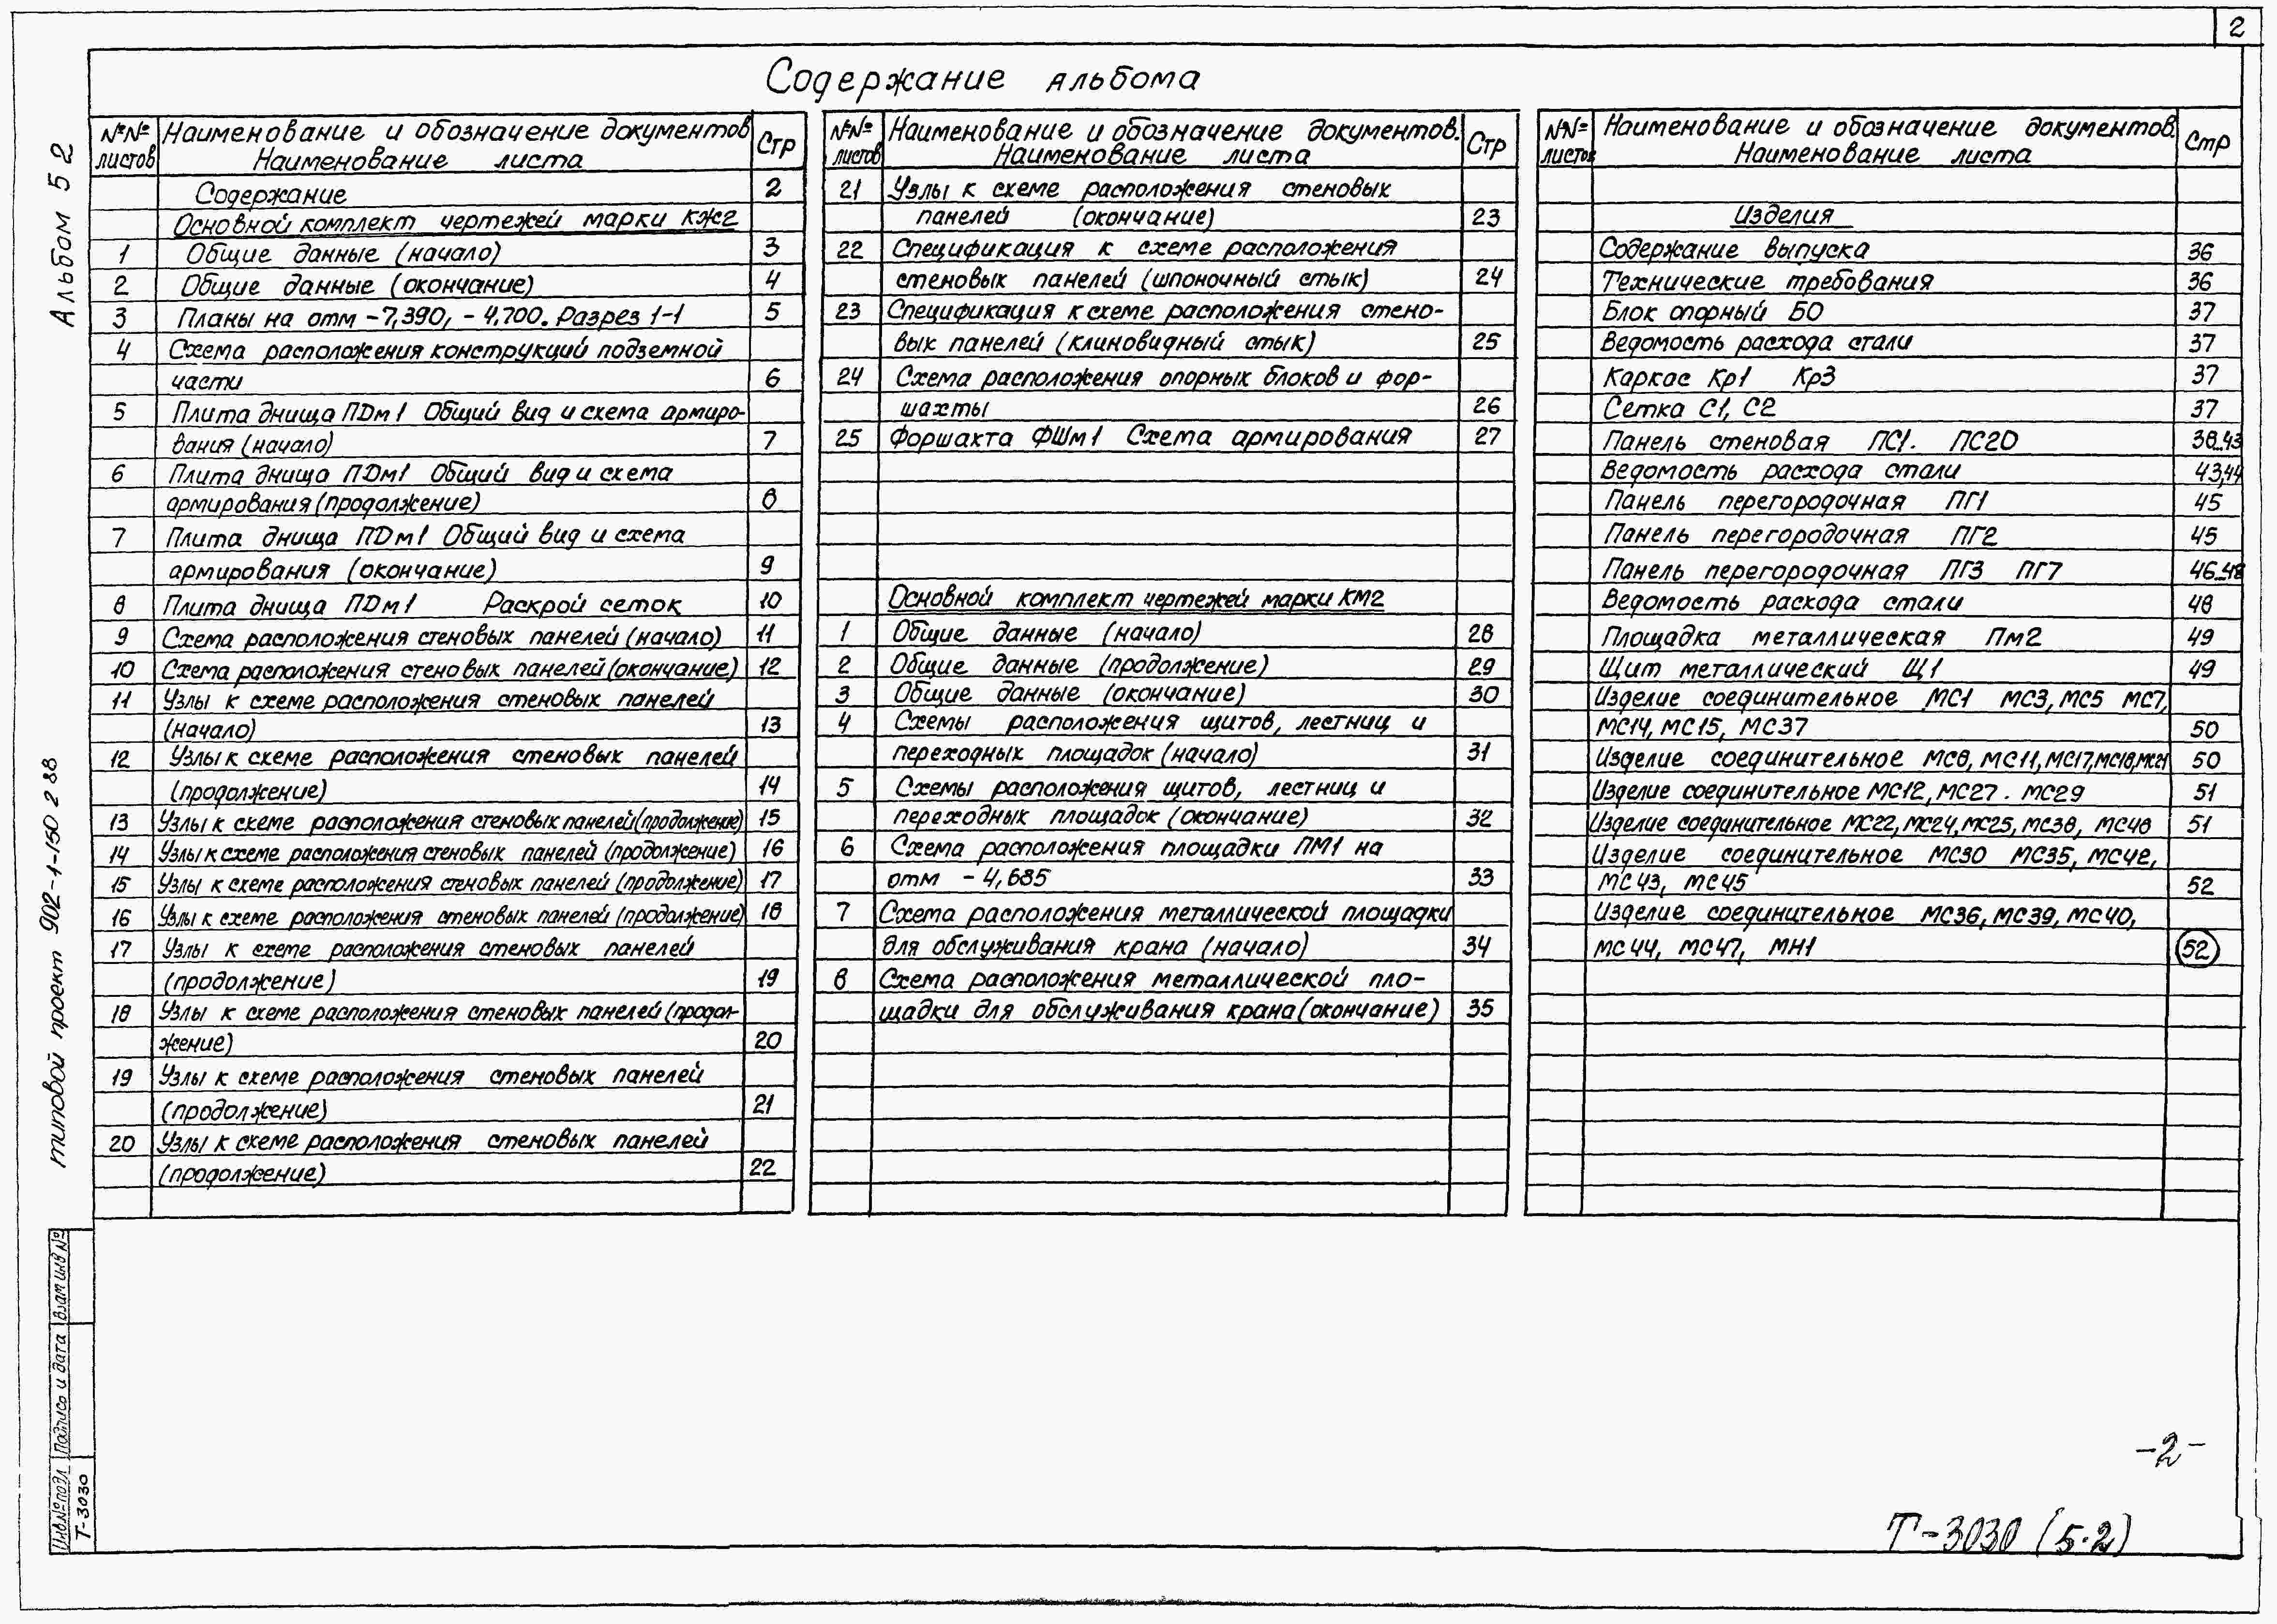 2
Содержание альбома
Альбом 5 2
типовой проект 902-1-150 2 88
№№ листов
Наименование и обозначение документов
Наименование листа
Стр
Содержание 2
Основной комплект чертежей марки КЖ2
1 Общие данные (начало) 3
2 Общие данные (окончание) 4
3 Планы на отм -7,390, -4,700. Разрез 1-1 5
4 Схема расположения конструкций подземной
части 6
5 Плита днища ПДм1 Общий вид и схема армиро-
вания (начало) 7
6 Плита днища ПДм1 Общий вид и схема
армирования (продолжение) 8
7 Плита днища ПДм1 Общий вид и схема
армирования (окончание) 9
8 Плита днища ПДм1 Раскрой сеток 10
9 Схема расположения стеновых панелей (начало) 11
10 Схема расположения стеновых панелей (окончание) 12
11 Узлы к схеме расположения стеновых панелей
(начало) 13
12 Узлы к схеме расположения стеновых панелей
(продолжение) 14
13 Узлы к схеме расположения стеновых панелей (продолжение) 15
14 Узлы к схеме расположения стеновых панелей (продолжение) 16
15 Узлы к схеме расположения стеновых панелей (продолжение) 17
16 Узлы к схеме расположения стеновых панелей (продолжение) 18
17 Узлы к схеме расположения стеновых панелей
(продолжение) 19
18 Узлы к схеме расположения стеновых панелей (продол-
жение) 20
19 Узлы к схеме расположения стеновых панелей
(продолжение) 21
20 Узлы к схеме расположения стеновых панелей
(продолжение) 22
№№ листов
Наименование и обозначение документов.
Наименование листа
Стр
21 Узлы к схеме расположения стеновых
панелей (окончание) 23
22 Спецификация к схеме расположения
стеновых панелей (шпоночный стык) 24
23 Спецификация к схеме расположения стено-
вых панелей (клиновидный стык) 25
24 Схема расположения опорных блоков и фор-
шахты 26
25 Форшахта ФШм1 Схема армирования 27
Основной комплект чертежей марки КМ2
1 Общие данные (начало) 28
2 Общие данные (продолжение) 29
3 Общие данные (окончание) 30
4 Схемы расположения щитов, лестниц и
переходных площадок (начало) 31
5 Схемы расположения щитов, лестниц и
переходных площадок (окончание) 32
6 Схема расположения площадки ПМ1 на
отм -4,685 33
7 Схема расположения металлической площадки
для обслуживания крана (начало) 34
8 Схема расположения металлической пло-
щадки для обслуживания крана (окончание) 35
№№ листов
Наименование и обозначение документов.
Наименование листа
Стр
Изделия
Содержание выпуска 36
Технические требования 36
Блок опорный БО 37
Ведомость расхода стали 37
Каркас Кр1 Кр3 37
Сетка С1, С2 37
Панель стеновая ПС1. ПС20 38..43
Ведомость расхода стали 43,44
Панель перегородочная ПГ1 45
Панель перегородочная ПГ2 45
Панель перегородочная ПГ3 ПГ7 46..48
Ведомость расхода стали 48
Площадка металлическая Пм2 49
Щит металлический Щ1 49
Изделие соединительное МС1 МС3, МС5 МС7,
МС14, МС15, МС37 50
Изделие соединительное МС8, МС11, МС17, МС18, МС21 50
Изделие соединительное МС12, МС27. МС29 51
Изделие соединительное МС22, МС24, МС25, МС38, МС48 51
Изделие соединительное МС30 МС35, МС42,
МС43, МС45 52
Изделие соединительное МС36, МС39, МС40,
МС44, МС47, МН1 52
Взам инв №
Подпись и дата
Инв № подл
Т-3030
-2-
Т-3030 (5.2)